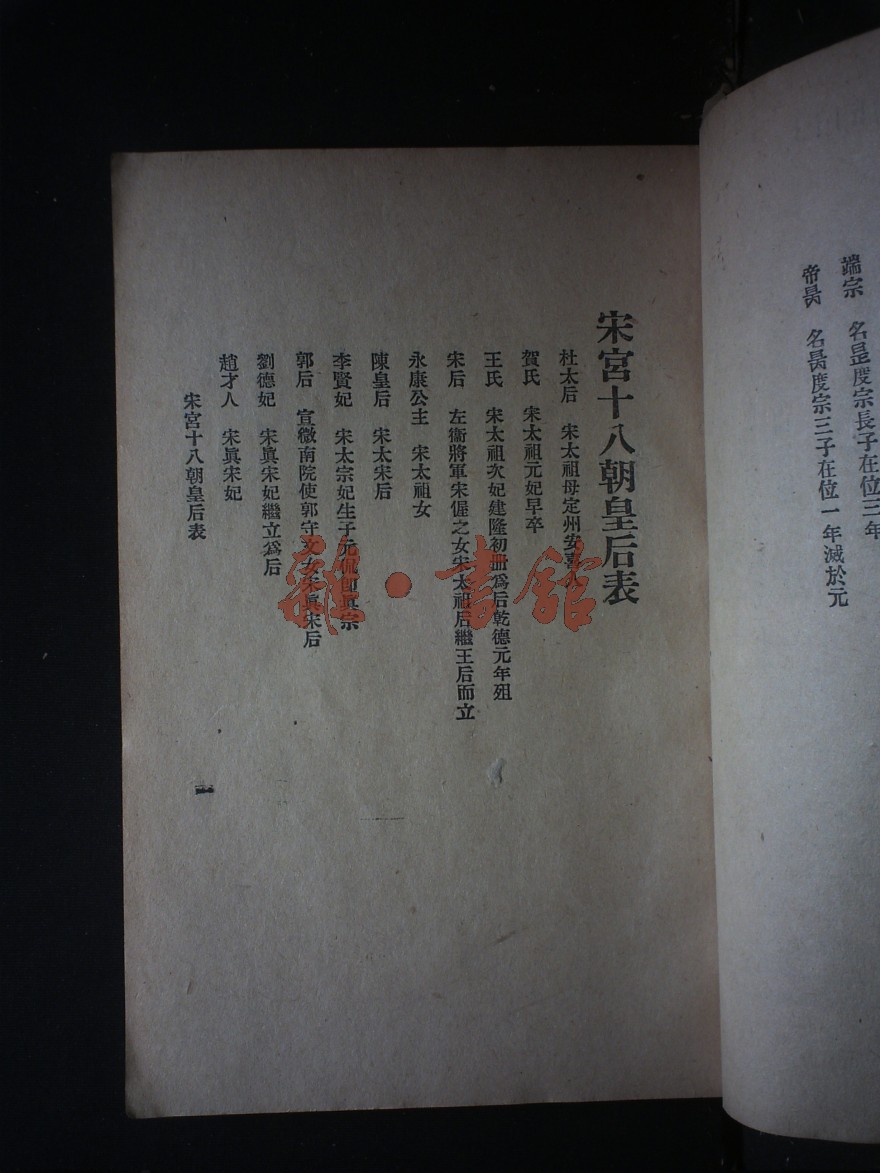 端宗　名昰度宗長子在位三年
帝昺　名昺度宗三子在位一年滅於元
宋宮十八朝皇后表
杜太后　宋太祖母定州安喜人
賀氏　宋太祖元妃早卒
王氏　宋太祖次妃建隆初冊爲后乾德元年殂
宋后　左衞將軍宋偓之女宋太祖后繼王后而立
永康公主　宋太祖女
陳皇后　宋太宋后
李賢妃　宋太宗妃生子元侃卽眞宗
郭后　宣徽南院使郭守文女宋眞宋后
劉德妃　宋眞宋妃繼立爲后
趙才人　宋眞宋妃
宋宮十八朝皇后表
一
雜·書館